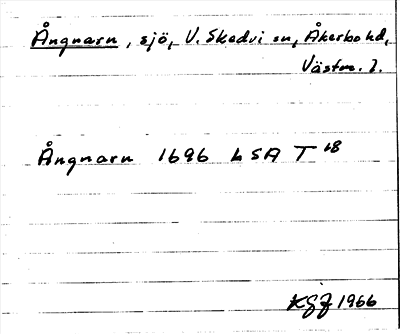 Ångnarn, sjö, V. Skedvi sn, Åkerbo hd,
Västm. l.
Ångnarn 1696 LSA T 18
KGJ 1966